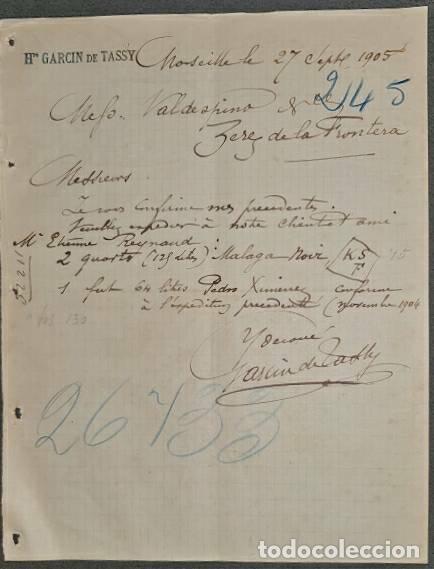 Hte GARCIN DE TASSY Marseille le 27 Septe 1905
2145
Messrs Valdespino
Xerez de la Frontera
Messieurs
Je vous confirme mes précédentes.
Veuillez expédier à notre client et ami
Mr Etienne Reynaud :
2 quarts (125 Lits) Malaga Noir K5
1 fut 64 litres Pedro Ximenez conforme
à l'expédition précédente (novembre 1904
Y Dévoué
Garcin de Tassy
26733
todocoleccion